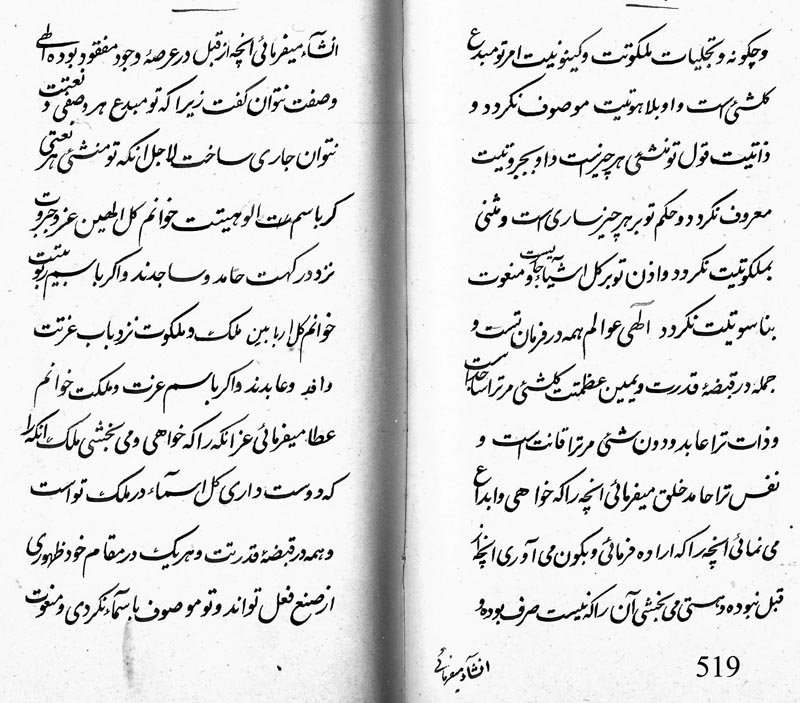 و چگونه و تجلیات ملکوتت و کینونیت امر تو مبدع
کلشئ است و او بلاهوتیت موصوف نگردد و
ذاتیت قول تو منشئ هر چیز است و او بجبروتیت
معروف نگردد و حکم تو بر هر چیز ساری است و مثنی
بملکوتیت نگردد و اذن تو بر کل اشیآء جاریست و منعوت
بناسوتیت نگردد الهی عوالم همه در فرمان تست و
جمله در قبضۀ قدرت و یمین عظمتت کلشئ مر ترا ساجد است
و ذات ترا عابد و دون شئ مر ترا قانت است و
نفس ترا حامد خلق میفرمائی انچه را که خواهی و ابداع
می نمائی انچه را که اراده فرمائی و بکون می آوری انچه از
قبل نبوده و هستی می بخشی آن را که نیست صرف بوده و
انشآء میفرمائی
519
انشآء میفرمائی انچه از قبل در عرصۀ وجود مفقود بوده الهی
وصفت نتوان گفت زیرا که تو مبدع هر وصفی و نعتت
نتوان جاری ساخت لاجل انکه تو منشئ هر نعتی
گر باسم الوهیتت خوانم کل الهین عز و جبروت
نزد درگهت حامد و ساجدند و اگر باسم ربوبیتت
خوانم کل اربابین ملک و ملکوت نزد باب عزتت
وافد و عابدند و اگر باسم عزت و ملکت خوانم
عطا میفرمائی عز انکه را که خواهی و می بخشی ملک انکه را
که دوست داری کل اسمآء در ملک تو است
و همه در قبضۀ قدرتت و هر یک در مقام خود ظهوری
از صنع فعل تواند و تو موصوف باسمآء نگردی و منعوت